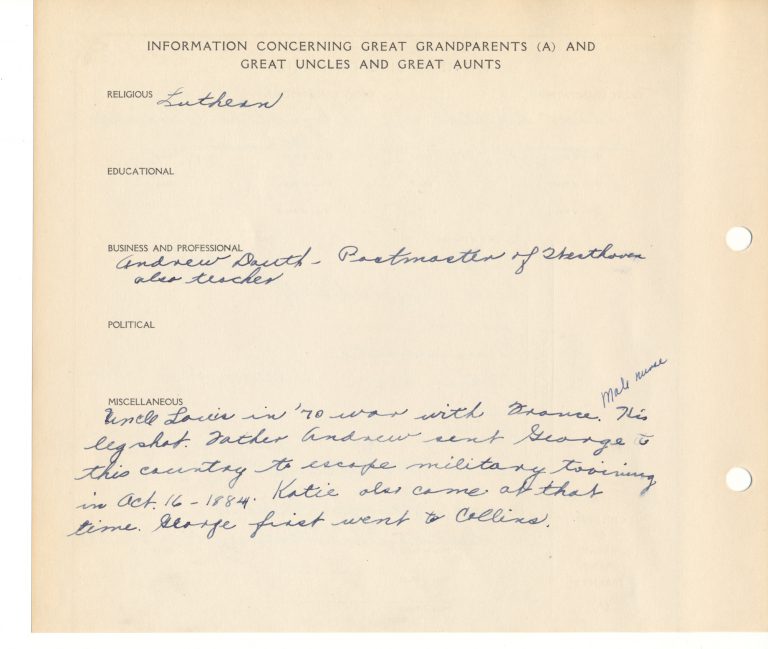 INFORMATION CONCERNING GREAT GRANDPARENTS (A) AND
GREAT UNCLES AND GREAT AUNTS
RELIGIOUS Lutheran
EDUCATIONAL
BUSINESS AND PROFESSIONAL
Andrew Dauth - Postmaster of Westhoven
also teacher
POLITICAL
Male nurse
MISCELLANEOUS
Uncle Louis in '70 war with France. His
leg shot. Father Andrew sent George to
this country to escape military training
in Oct. 16 - 1884. Katie also came at that
time. George first went to Collins.